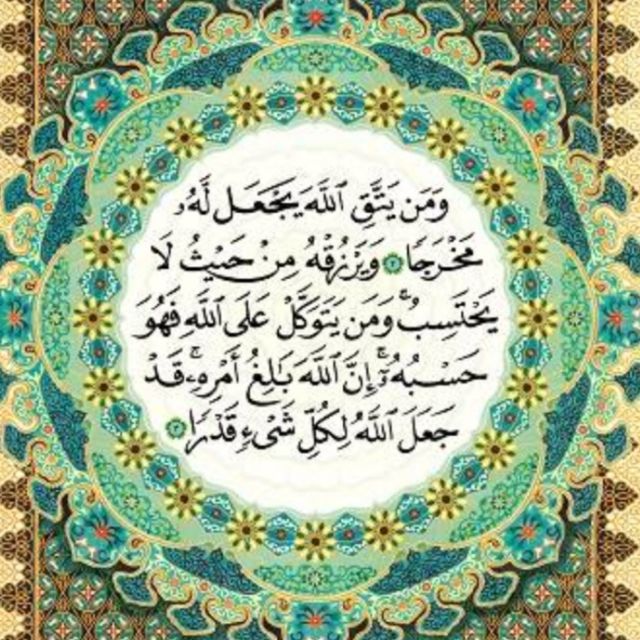 وَمَن يَتَّقِ ٱللَّهَ يَجْعَل لَّهُۥ
مَخْرَجًا ٢ وَيَرْزُقْهُ مِنْ حَيْثُ لَا
يَحْتَسِبُ ۚ وَمَن يَتَوَكَّلْ عَلَى ٱللَّهِ فَهُوَ
حَسْبُهُۥٓ ۚ إِنَّ ٱللَّهَ بَـٰلِغُ أَمْرِهِۦ ۚ قَدْ
جَعَلَ ٱللَّهُ لِكُلِّ شَىْءٍ قَدْرًا ٣